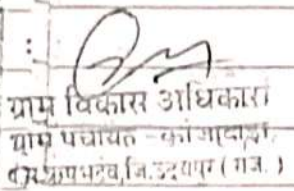 :
ग्राम विकास अधिकारी
ग्राम पंचायत -
जि. उदयपुर ( राज. )